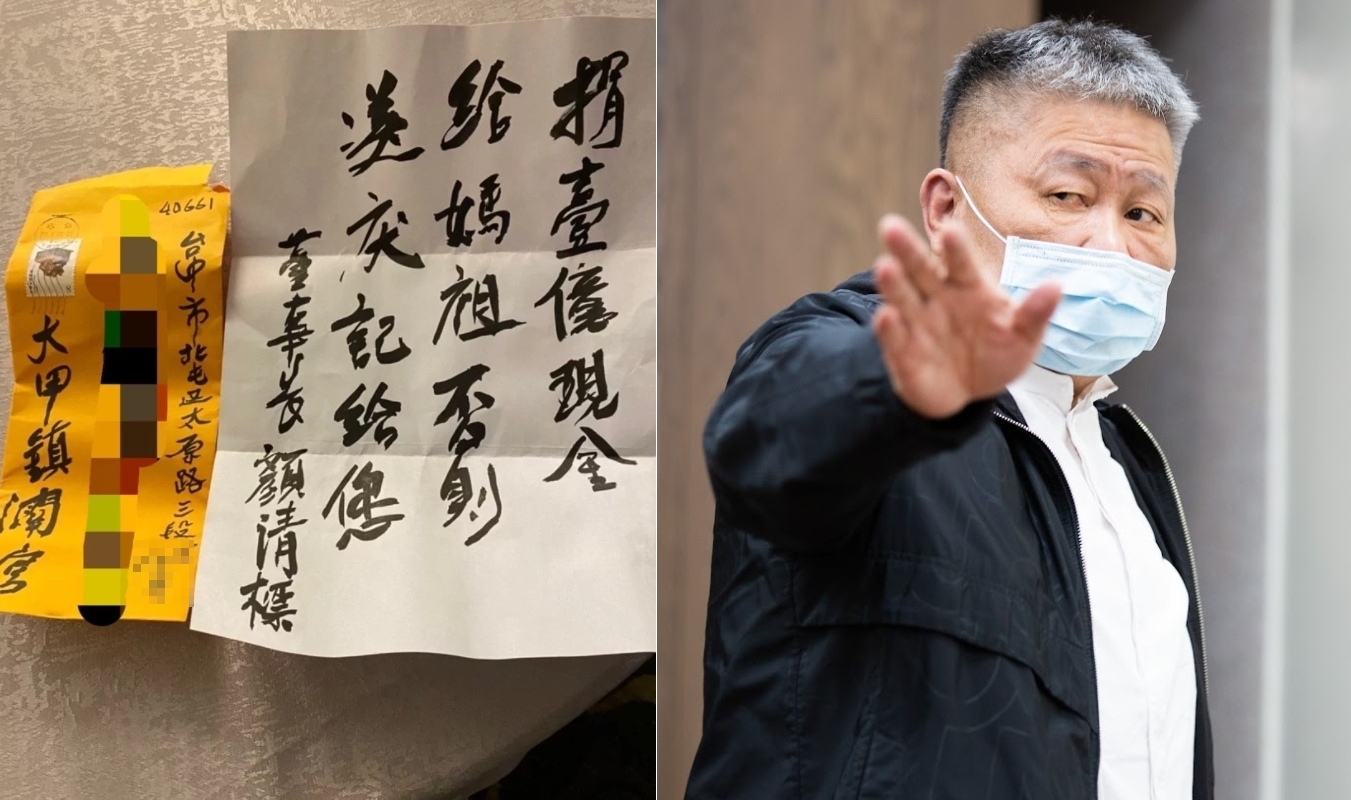 40661
台中市北屯区太原路三段
大甲鎮瀾宮
捐壹億現金
給媽祖否則
記給您
董事長顏清標